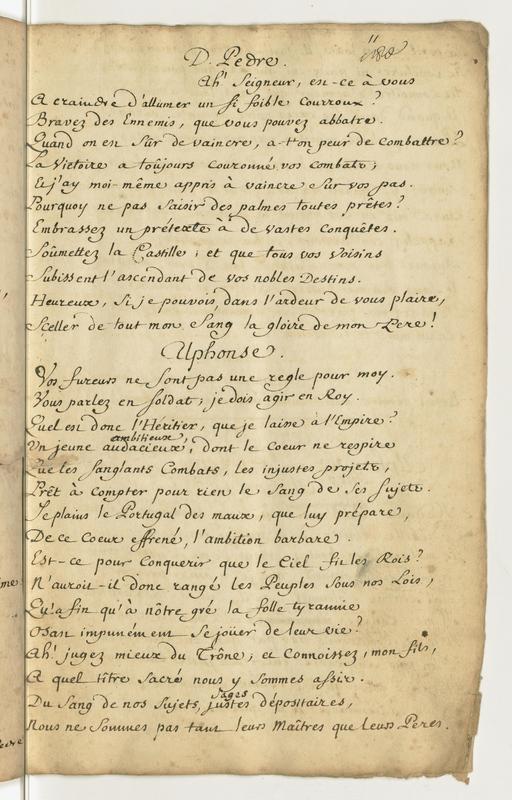 D. Pedre.
Ah! Seigneur, est-ce à vous
A craindre d'allumer un si foible courroux?
Bravez des Ennemis, que vous pouvez abbatre.
Quand on est Sûr de vaincre, a-t'on peur de combattre?
La Victoire a toûjours couronné vos combats;
Et j'ay moi-même appris à vaincre sur vos pas.
Pourquoy ne pas saisir des palmes toutes prêtes?
Embrassez un prétexte à de vastes conquêtes.
Soûmettez la Castille; et que tous vos Voisins
Subissent l'ascendant de vos nobles Destins.
Heureux, si je pouvois, dans l'ardeur de vous plaire,
Sceller de tout mon Sang la gloire de mon Pere!
Alphonse.
Vos fureurs ne sont pas une regle pour moy.
Vous parlez en soldat; je dois agir en Roy.
Quel est donc l'Héritier, que je laisse à l'Empire?
ambitieux
Un jeune audacieux, dont le Coeur ne respire
Que les sanglants Combats, les injustes projets,
Prêt à compter pour rien le Sang de ses sujets.
Je plains le Portugal des maux, que luy prépare,
De ce Coeur effrené, l'ambition barbare.
Est-ce pour Conquerir que le Ciel fit les Rois?
N'auroit-il donc rangé les Peuples sous nos Lois,
Qu'afin qu'à nôtre gré la folle tyrannie
Osast impunément se joüer de leur vie?
Ah! jugez mieux du Trône; et Connoissez, mon fils,
A quel tître Sacré nous y sommes assis.
Sages
Du Sang de nos Sujets, justes dépositaires,
Nous ne Sommes pas tant leurs Maîtres que leurs Peres.